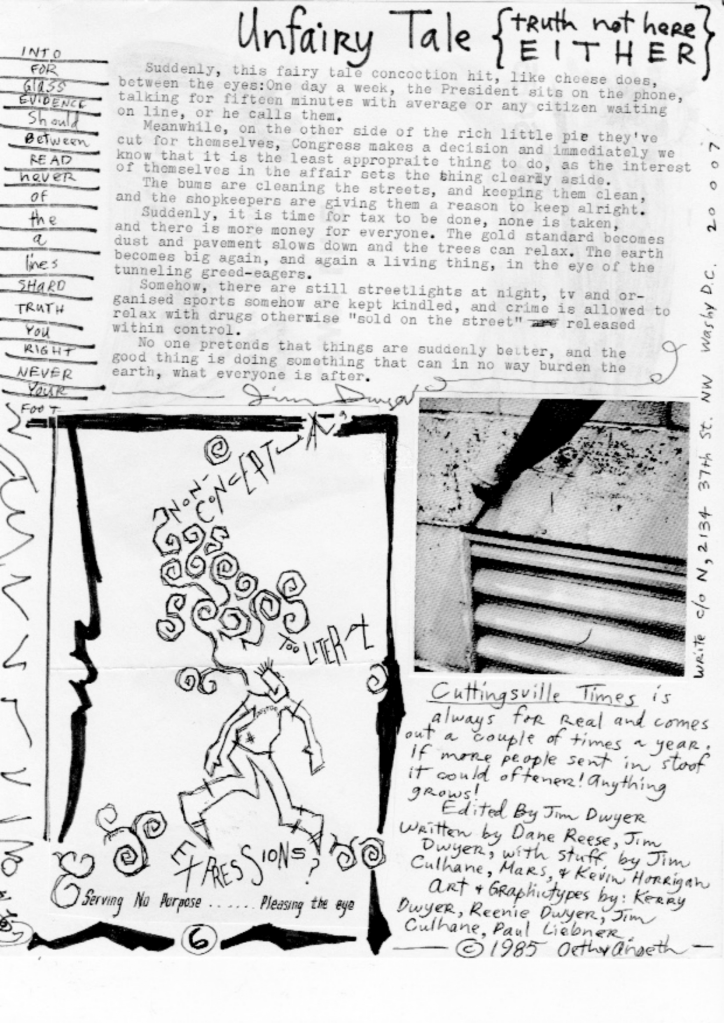 Unfairy Tale {truth not here
EITHER}
INTO
FOR
Glass
EVIDENCE
Should
Between
READ
never
of
the
a
lines
SHARD
TRUTH
YOU
RIGHT
NEVER
YOUR
FOOT
Suddenly, this fairy tale concoction hit, like cheese does,
between the eyes:One day a week, the President sits on the phone,
talking for fifteen minutes with average or any citizen waiting
on line, or he calls them.
Meanwhile, on the other side of the rich little pie they've
cut for themselves, Congress makes a decision and immediately we
know that it is the least appropraite thing to do, as the interest
of themselves in the affair sets the thing clearly aside.
The bums are cleaning the streets, and keeping them clean,
and the shopkeepers are giving them a reason to keep alright.
Suddenly, it is time for tax to be done, none is taken,
and there is more money for everyone. The gold standard becomes
dust and pavement slows down and the trees can relax. The earth
becomes big again, and again a living thing, in the eye of the
tunneling greed-eagers.
Somehow, there are still streetlights at night, tv and or-
ganised sports somehow are kept kindled, and crime is allowed to
relax with drugs otherwise "sold on the street" released
within control.
No one pretends that things are suddenly better, and the
good thing is doing something that can in no way burden the
earth, what everyone is after.
Jim Dwyer
write c/o N, 2134 37th St. NW Washy D.C. 20007
NON-
CONCEPT
TOO LITERAL
EXPRESSIONS?
Serving No Purpose ...... Pleasing the eye
6
Cuttingsville Times is
always for real and comes
out a couple of times a year.
If more people sent in stoof
it could oftener! Anything
grows!
Edited By Jim Dwyer
Written by Dane Reese, Jim
Dwyer, with stuff by Jim
Culhane, Mars, & Kevin Horrigan
Art & Graphictypes by: Kerry
Dwyer, Reenie Dwyer, Jim
Culhane, Paul Liebner.
© 1985